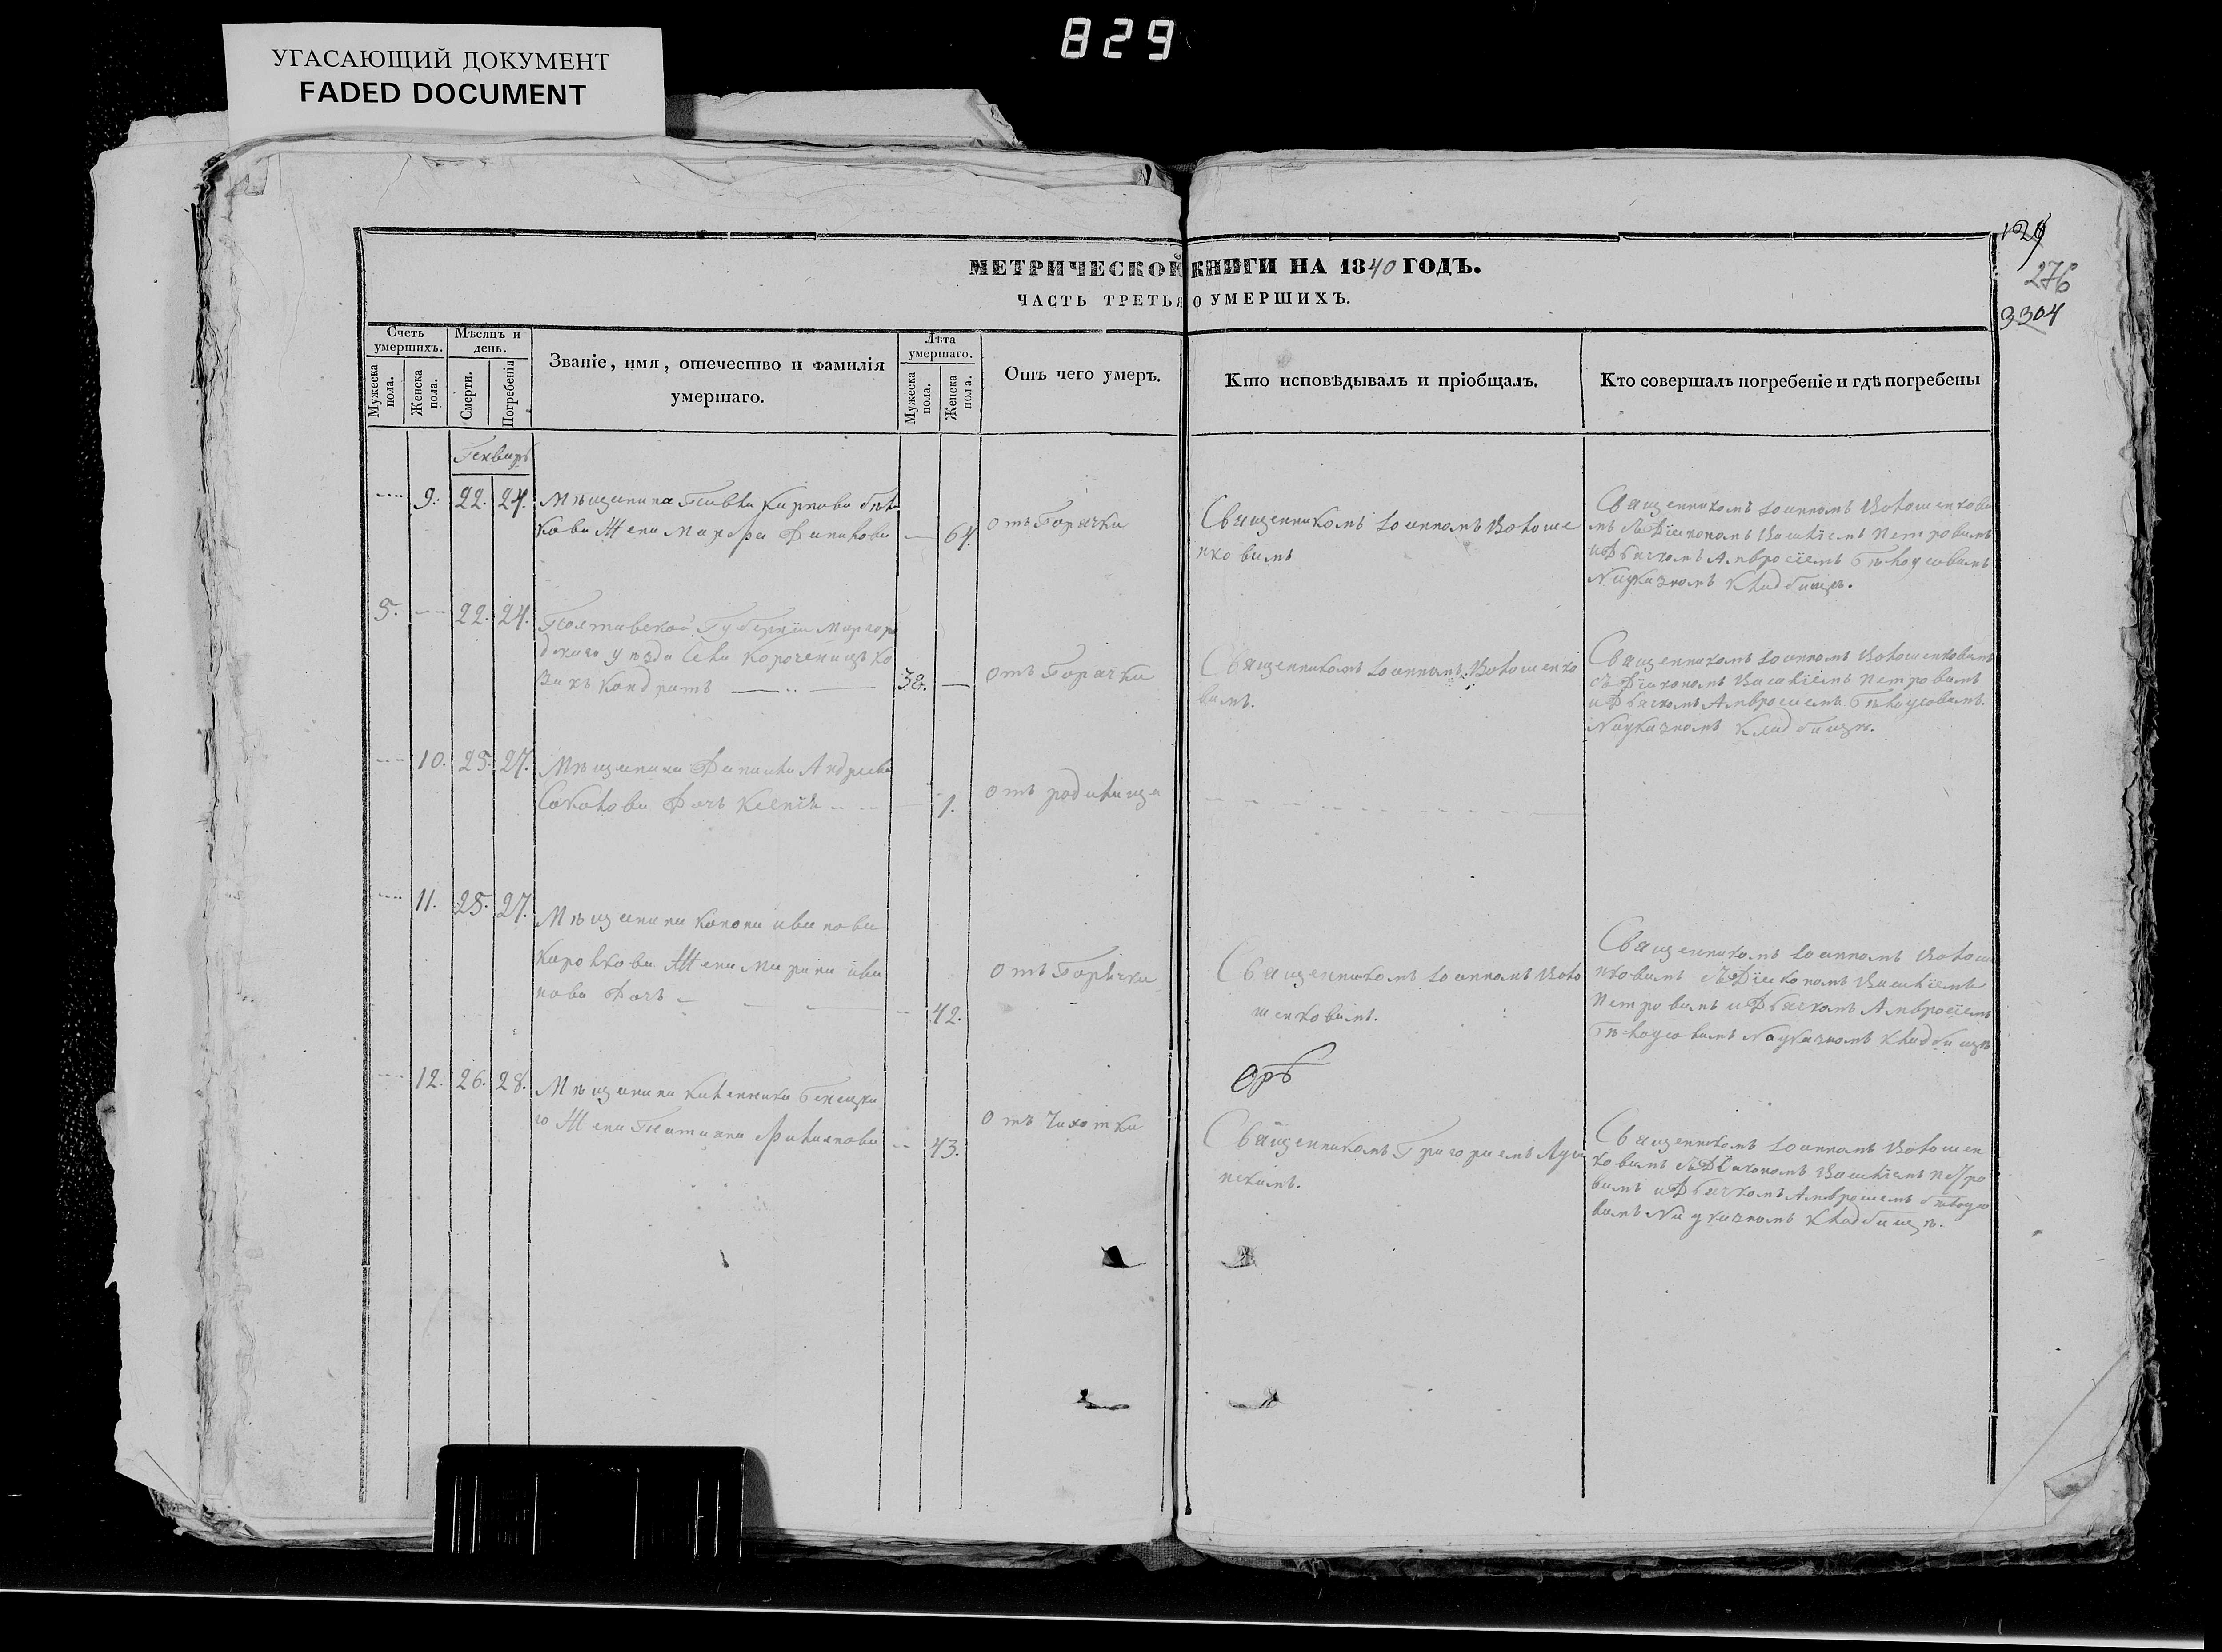 829
УГАСАЮЩИЙ ДОКУМЕНТ
FADED DOCUMENT
129
276
3304
МЕТРИЧЕСКОЙ КНИГИ НА 1840 ГОДЪ.
ЧАСТЬ ТРЕТЬЯ О УМЕРШИХЪ.
Счетъ умершихъ.
Мужеска пола.
Женска пола.
Мѣсяцъ и день.
Смерти.
Погребенія
Званіе, имя, отечество и фамилія
умершаго.
Лѣта умершаго.
Мужеска пола.
Женска пола.
Отъ чего умеръ.
Кто исповѣдывалъ и пріобщалъ.
Кто совершалъ погребеніе и гдѣ погребены
Генваръ
9. 22. 24.
Мѣщанина Павла Карпова
кова Жена Марфа Данилова
64.
отъ Горячки
Священникомъ Іоанномъ Волоше
нковимъ
Священникомъ Іоанномъ Волошенкови
мъ съ Діакономъ Василіемъ Петровимъ
и Дьячкомъ Амвросіемъ Бѣлоусовимъ
На указномъ Кладбищѣ.
5. 22. 24.
Полтавской Губерніи Миргоро
дскаго уѣзда
Кондратъ
38.
отъ Горячки
Священникомъ Іоанномъ Волошенко
вимъ.
Священникомъ Іоанномъ Волошенковимъ
съ Діакономъ Василіемъ Петровимъ
и Дьячкомъ Амвросіемъ Бѣлоусовимъ.
На указномъ Кладбищѣ.
10. 25. 27.
Мѣщанина Данила Андреева
Соколова Дочь Ксенія
1.
отъ родимца
11. 25. 27.
Мѣщанина Конона Иванова
Жена Марина Ива
нова Дочь
42.
отъ Горячки
Священникомъ Іоанномъ Воло
шенковимъ.
Священникомъ Іоанномъ Волоше
нковимъ съ Діакономъ Василіемъ
Петровимъ и Дьячкомъ Амвросіемъ
Бѣлоусовимъ На указномъ Кладбищѣ
12. 26. 28.
Мѣщанина
го Жена Татіанна
43.
отъ Чихотки
Священникомъ Григоріемъ
нскимъ.
Священникомъ Іоанномъ Волошен
ковимъ съ Діакономъ Василіемъ Петро
вимъ и Дьячкомъ Амвросіемъ Бѣлоусо
вимъ На указномъ Кладбищѣ.